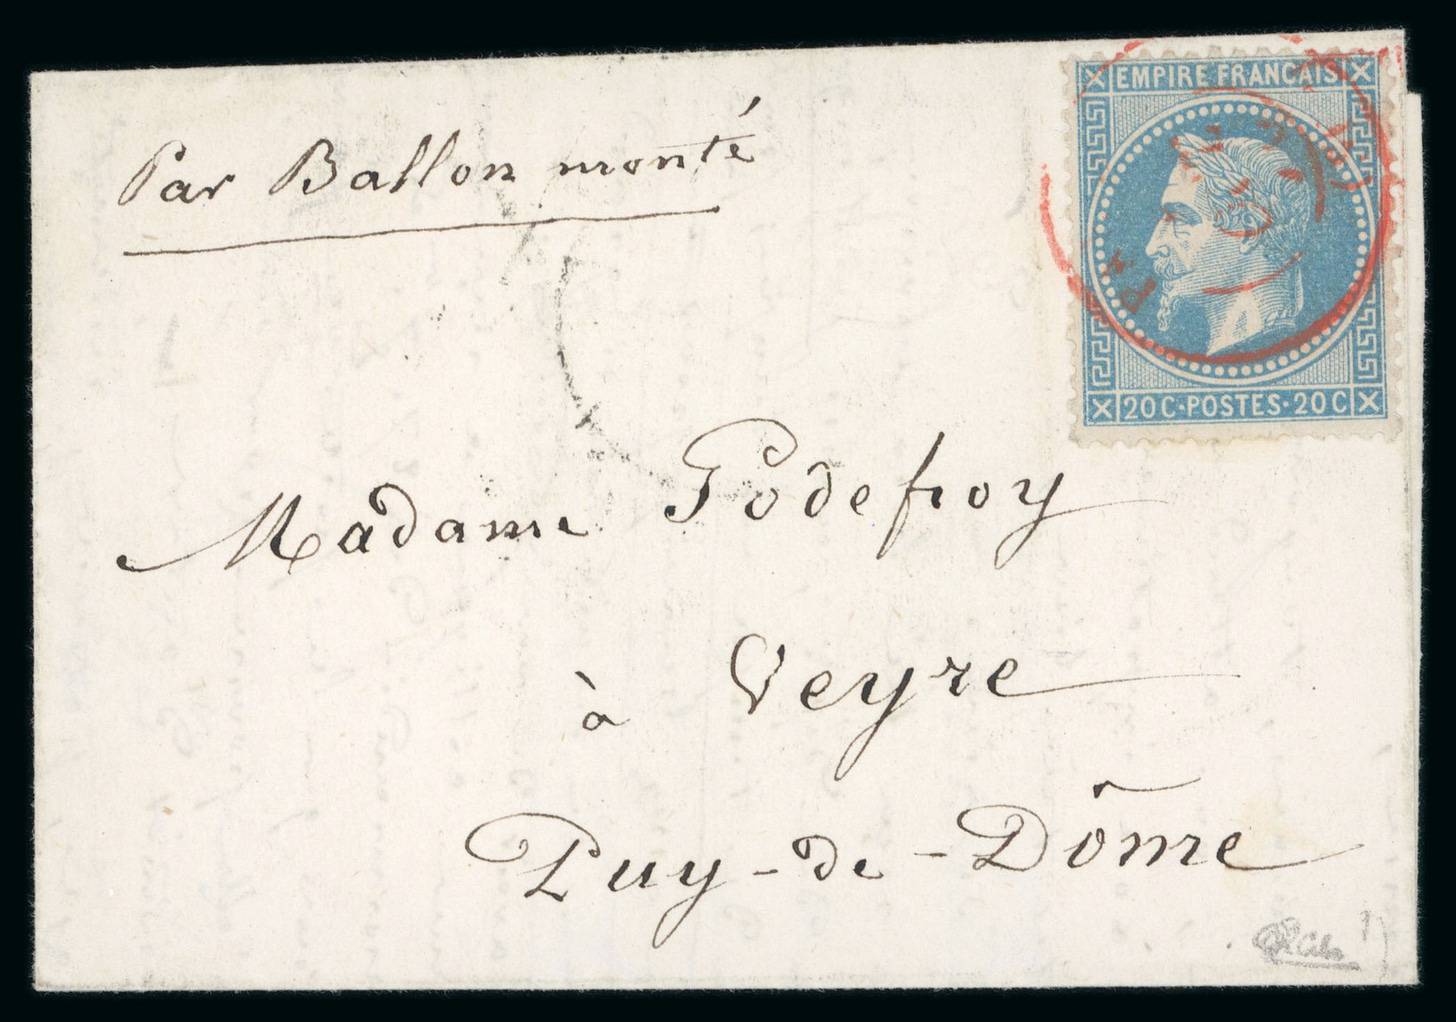 Par Ballon monté
EMPIRE FRANÇAIS
20 C·POSTES·20 C
Madame Godefroy
à Veyre
Puy-de-Dôme